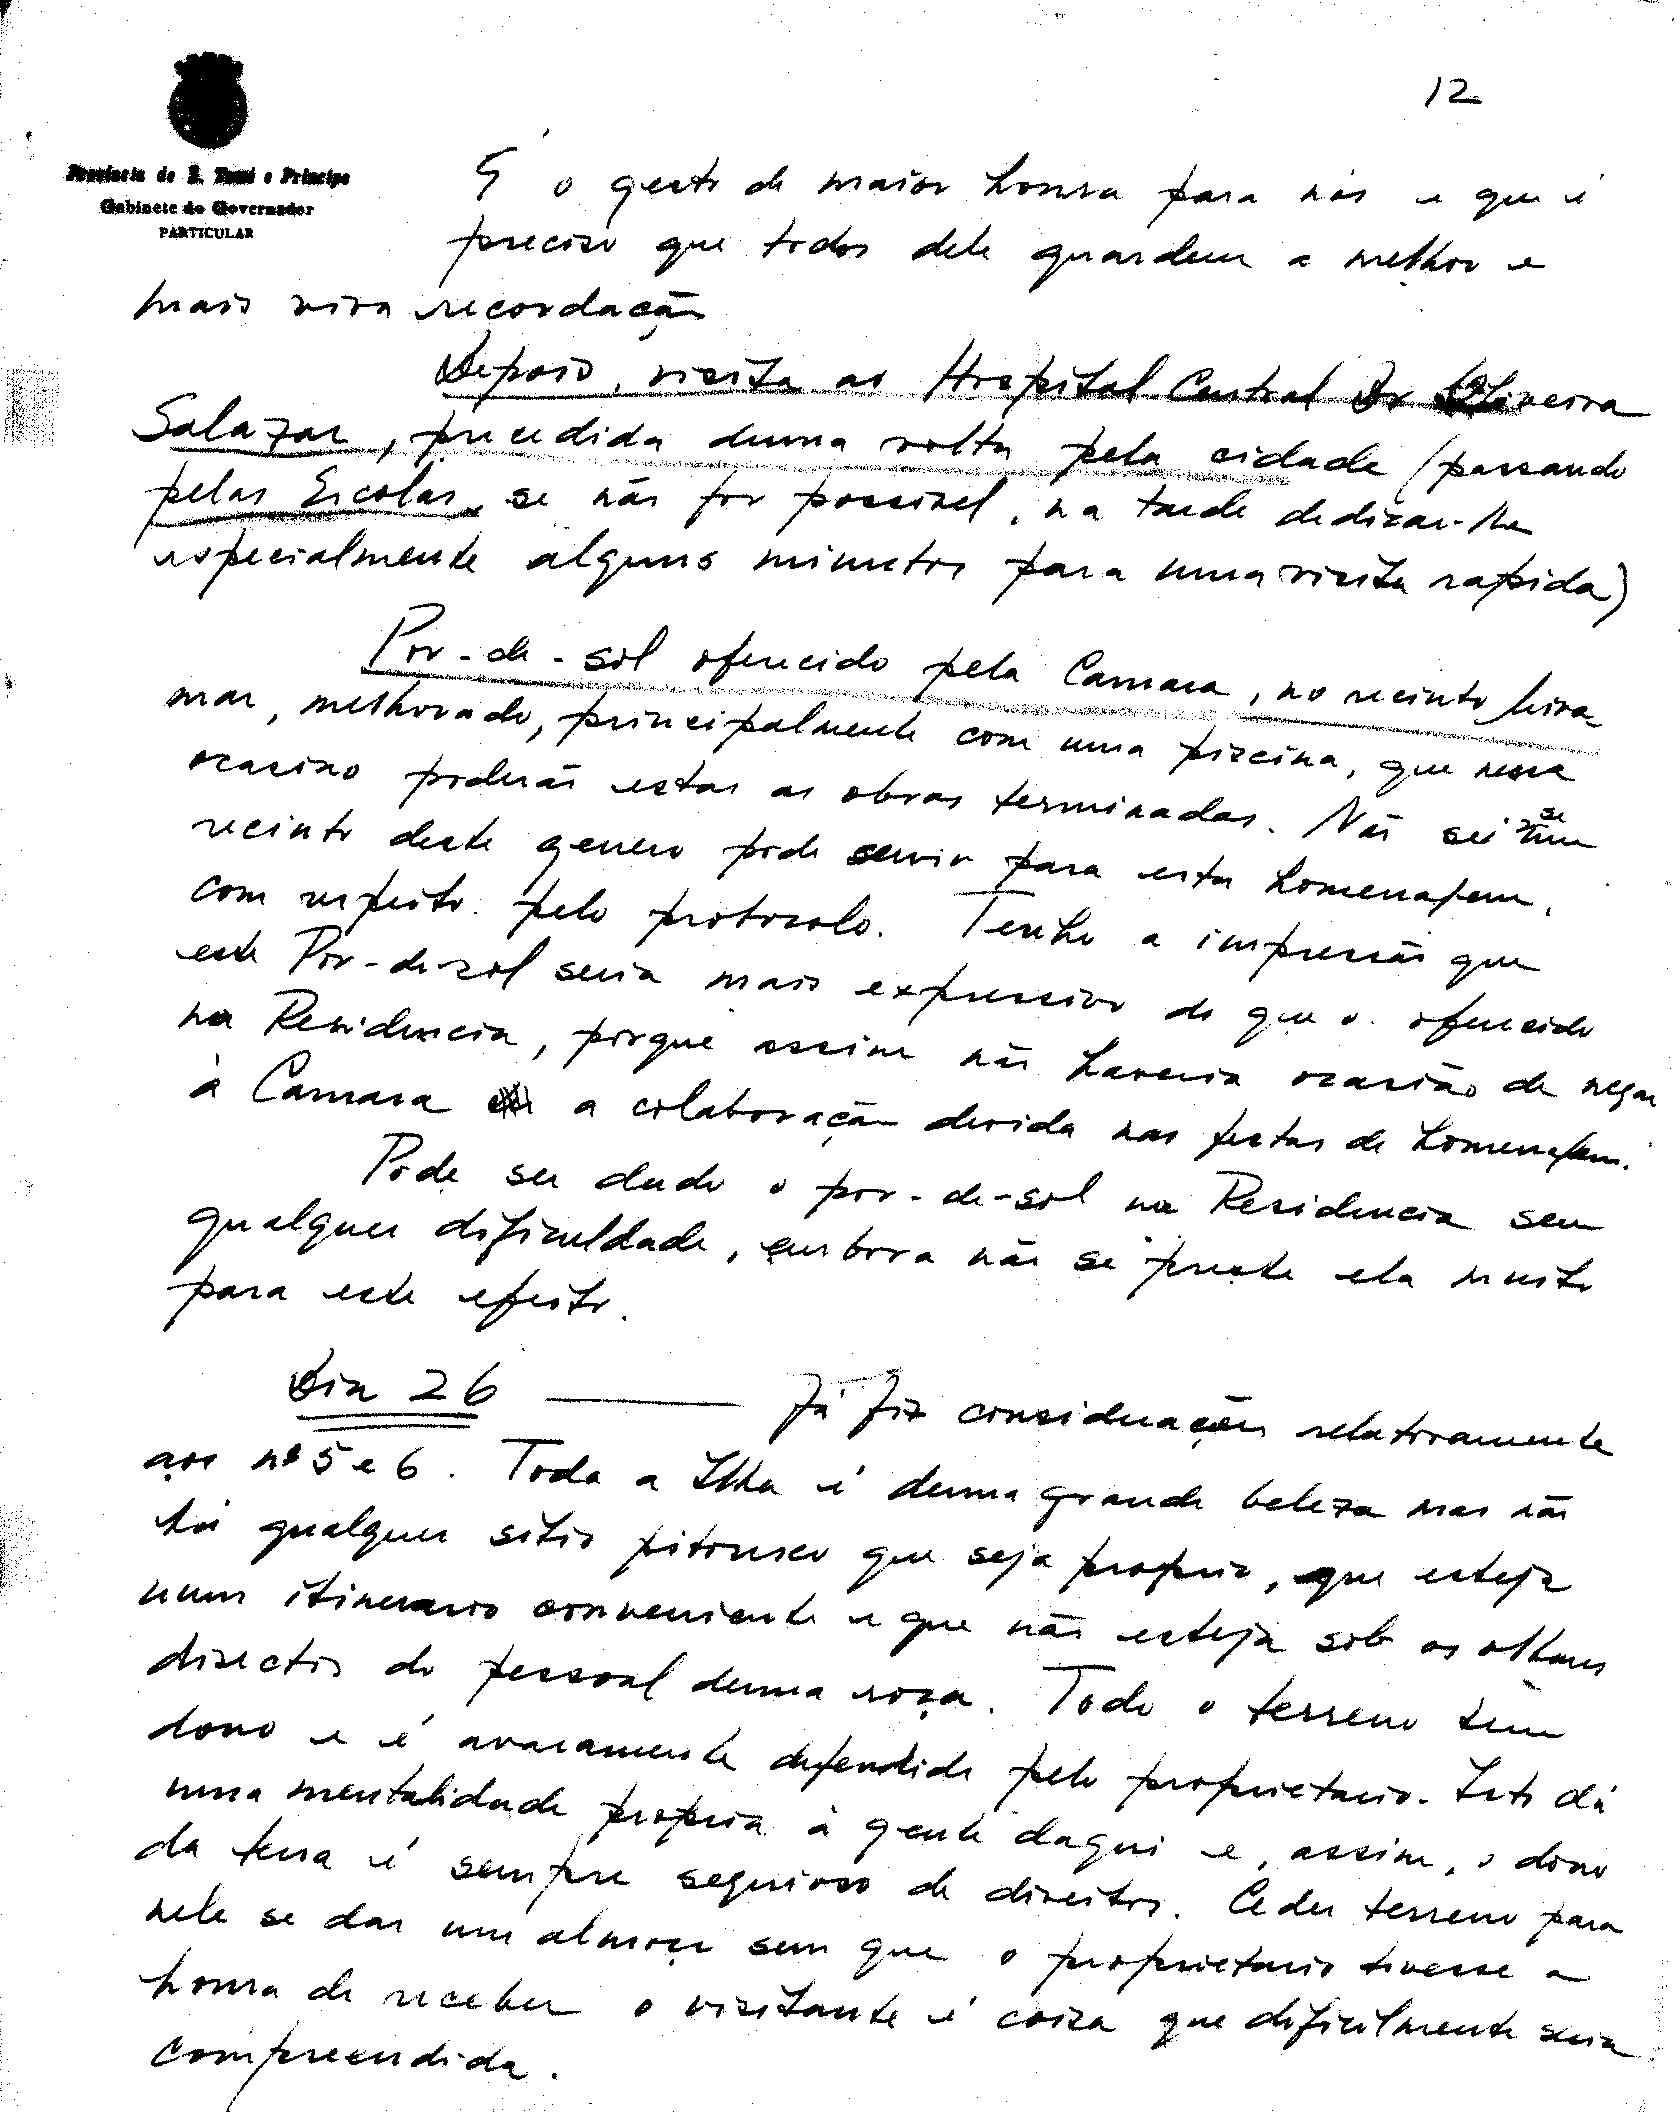 12
Província de S. Tomé e Príncipe
Gabinete do Governador
PARTICULAR
É o gesto de maior honra para nós e que é
preciso que todos dele guardem a melhor e
mais viva recordação
Depois, visita ao Hospital Central Dr Oliveira
Salazar, precedida duma volta pela cidade (passando
pelas Escolas, se não for possivel, na tarde dedicar-lhe
especialmente alguns minutos para uma visita rapida)
Por-de-sol oferecido pela Camara, no recinto beira
mar, melhorado, principalmente com uma piscina, que nessa
ocasião poderão estar as obras terminadas. Não sei se um
recinto deste genero pode servir para esta homenagem,
com respeito pelo protocolo. Tenho a impressão que
este Por-de-sol seria mais expressivo do que o oferecido
na Residencia, porque assim não haveria ocasião de negar
à Camara a colaboração devida nas festas de homenagem.
Pode ser dado o por-de-sol na Residencia sem
qualquer dificuldade, embora não se preste ela muito
para este efeito.
Dia 26 — Já fiz considerações relativamente
aos nº 5 e 6. Toda a Ilha é duma grande beleza mas não
há qualquer sitio pitoresco que seja proprio, que esteja
num itinerario conveniente e que não esteja sob os olhares
directos do pessoal duma roça. Todo o terreno tem
dono e é avaramente defendido pelo proprietario. Isto dá
uma mentalidade propria à gente daqui e, assim, o dono
da terra é sempre sequioso de direitos. Ceder terreno para
nele se dar um almoço sem que o proprietario tivesse a
honra de receber o visitante é coisa que dificilmente seria
compreendida.